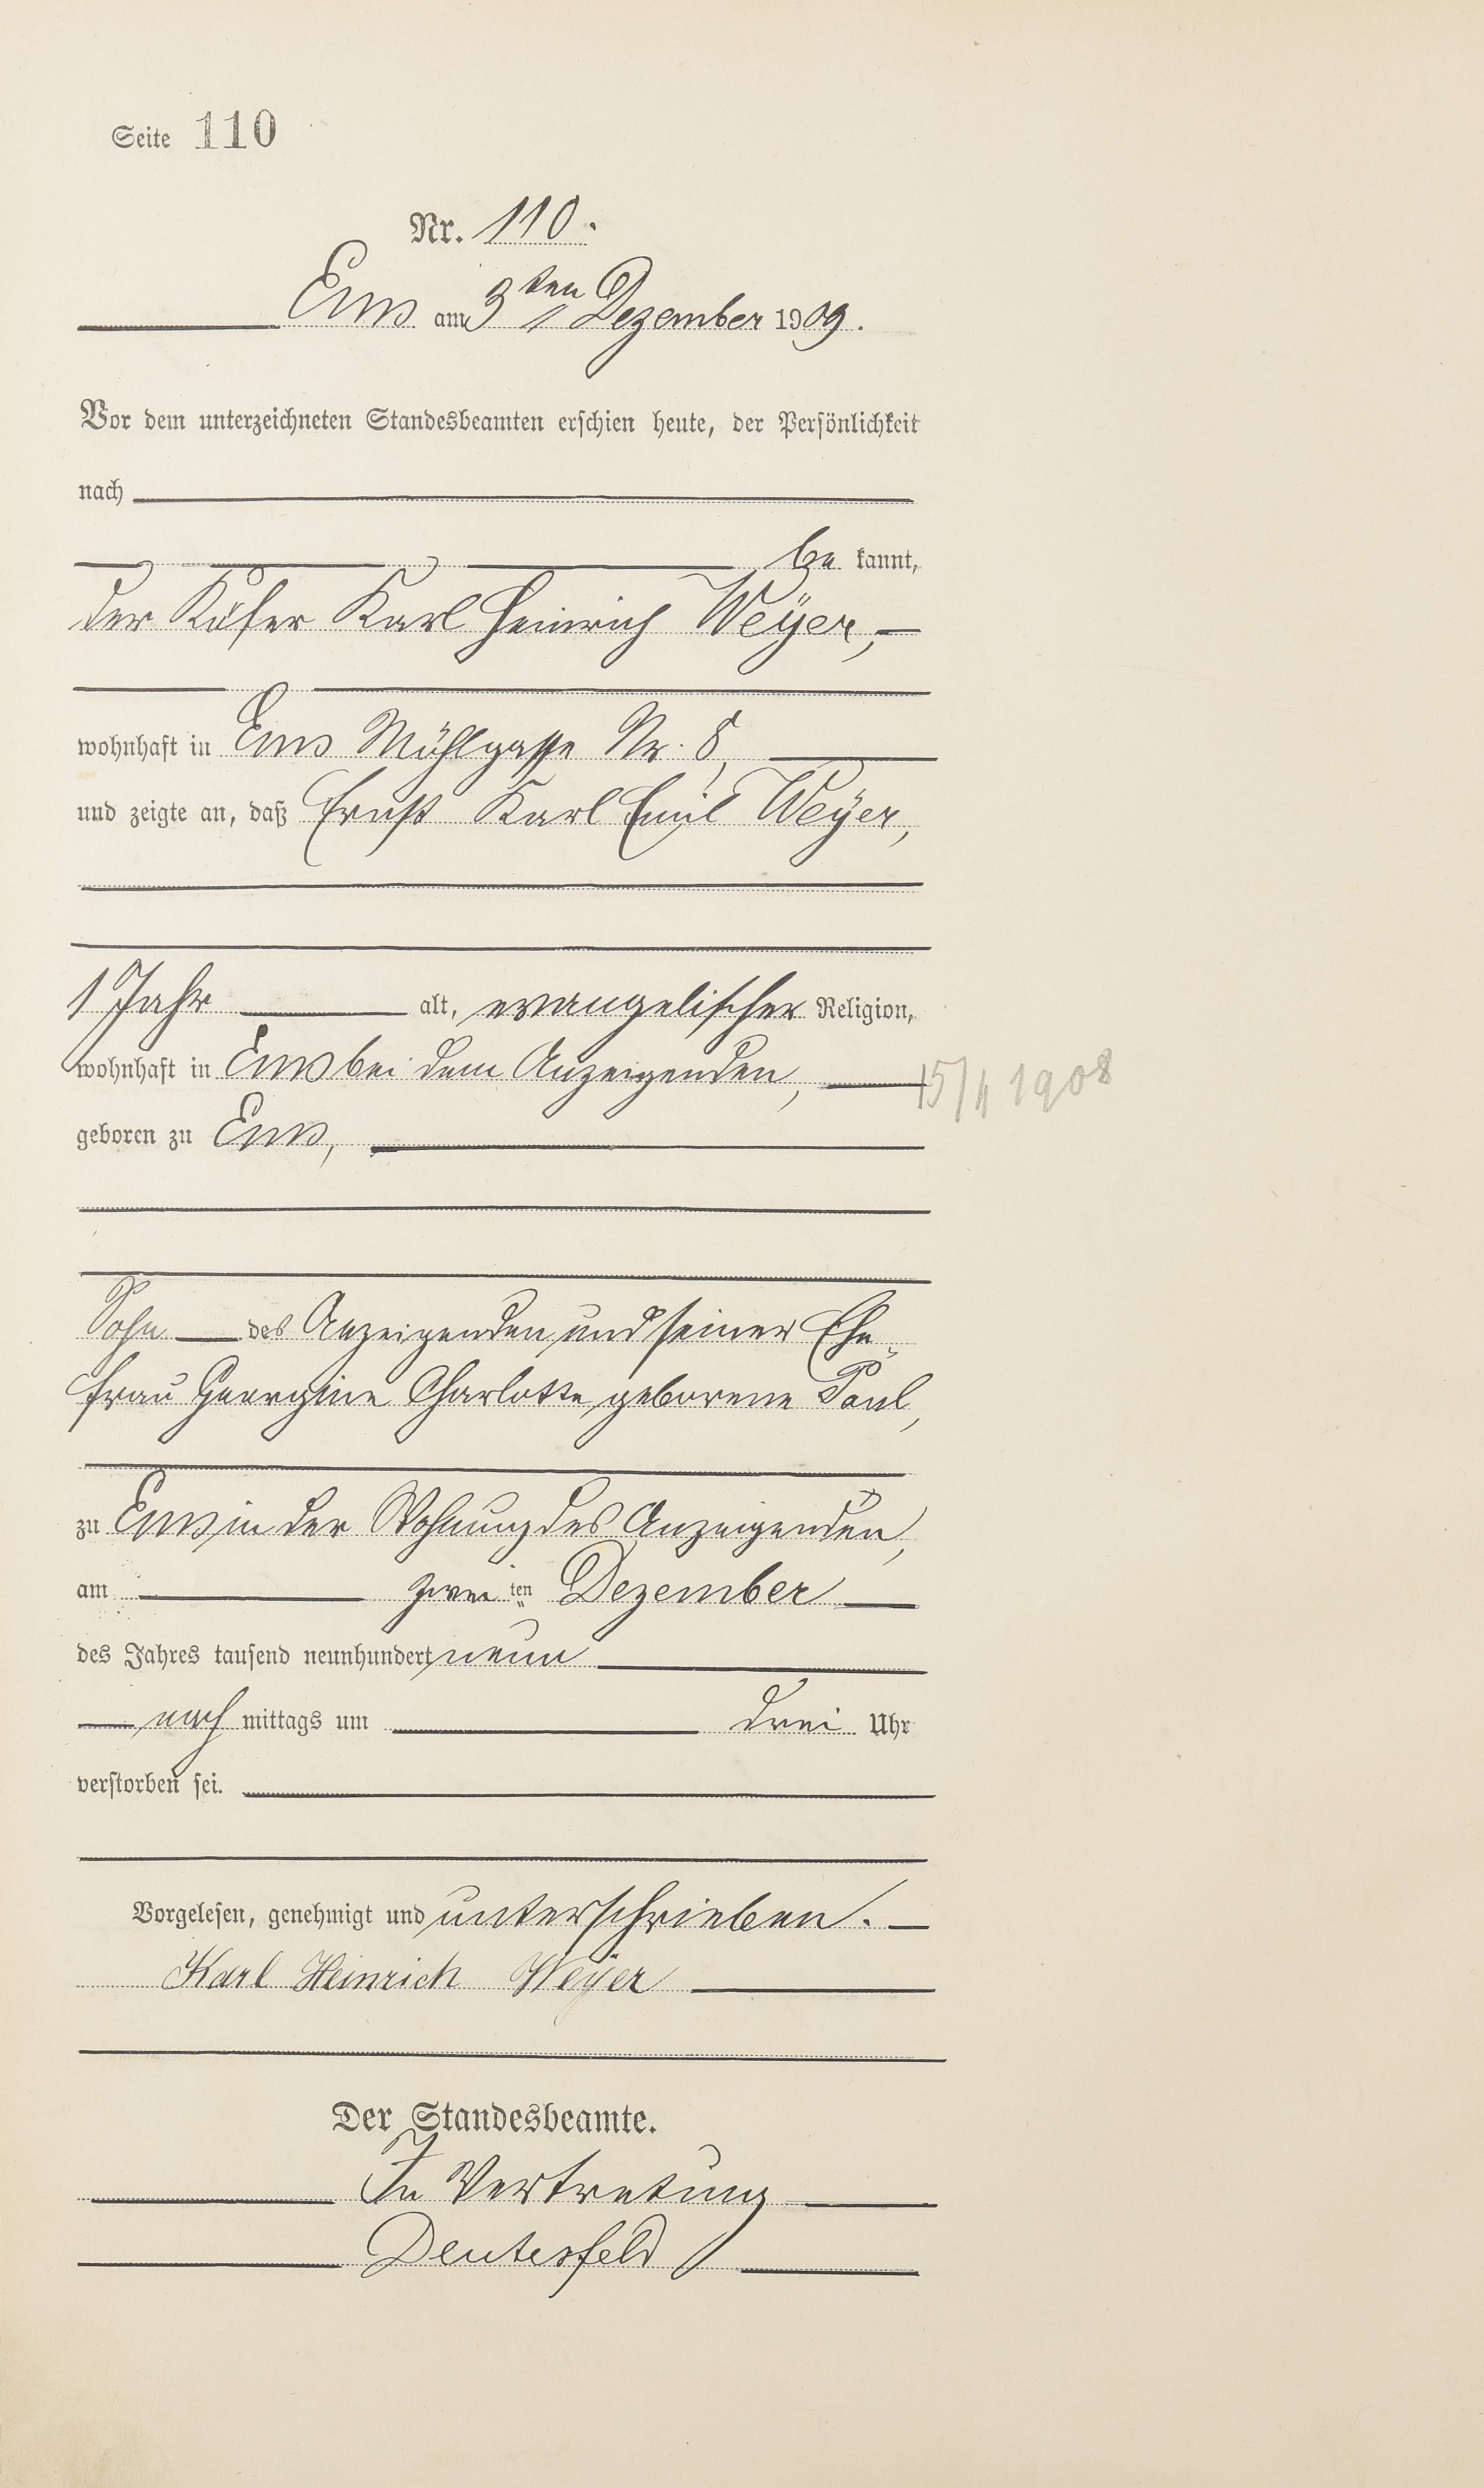 Seite 110
Nr. 110.
Ems am 3ten Dezember 1909.
Vor dem unterzeichneten Standesbeamten erschien heute, der Persönlichkeit
nach
be kannt,
der Küfer Karl Heinrich Weÿer,
wohnhaft in Ems Mühlgasse Nr. 8,
und zeigte an, daß Ernst Karl Emil Weÿer,
1 Jahr alt, evangelischer Religion,
wohnhaft in Ems bei dem Anzeigenden,
15/4 1908
geboren zu Ems,
Sohn des Anzeigenden und seiner Ehe-
frau Georgine Charlotte, geborene Paul,
zu Ems in der Wohnung des Anzeigenden,
am zweiten Dezember
des Jahres tausend neunhundert neun
nach mittags um drei Uhr
verstorben sei.
Vorgelesen, genehmigt und unterschrieben.
Karl Heinrich Weÿer
Der Standesbeamte.
In Vertretung
Deutesfeld